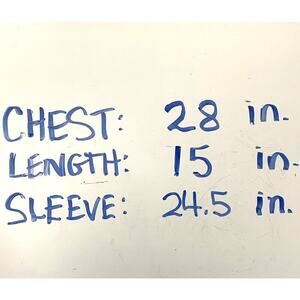 CHEST: 28 in.
LENGTH: 15 in.
SLEEVE: 24.5 in.